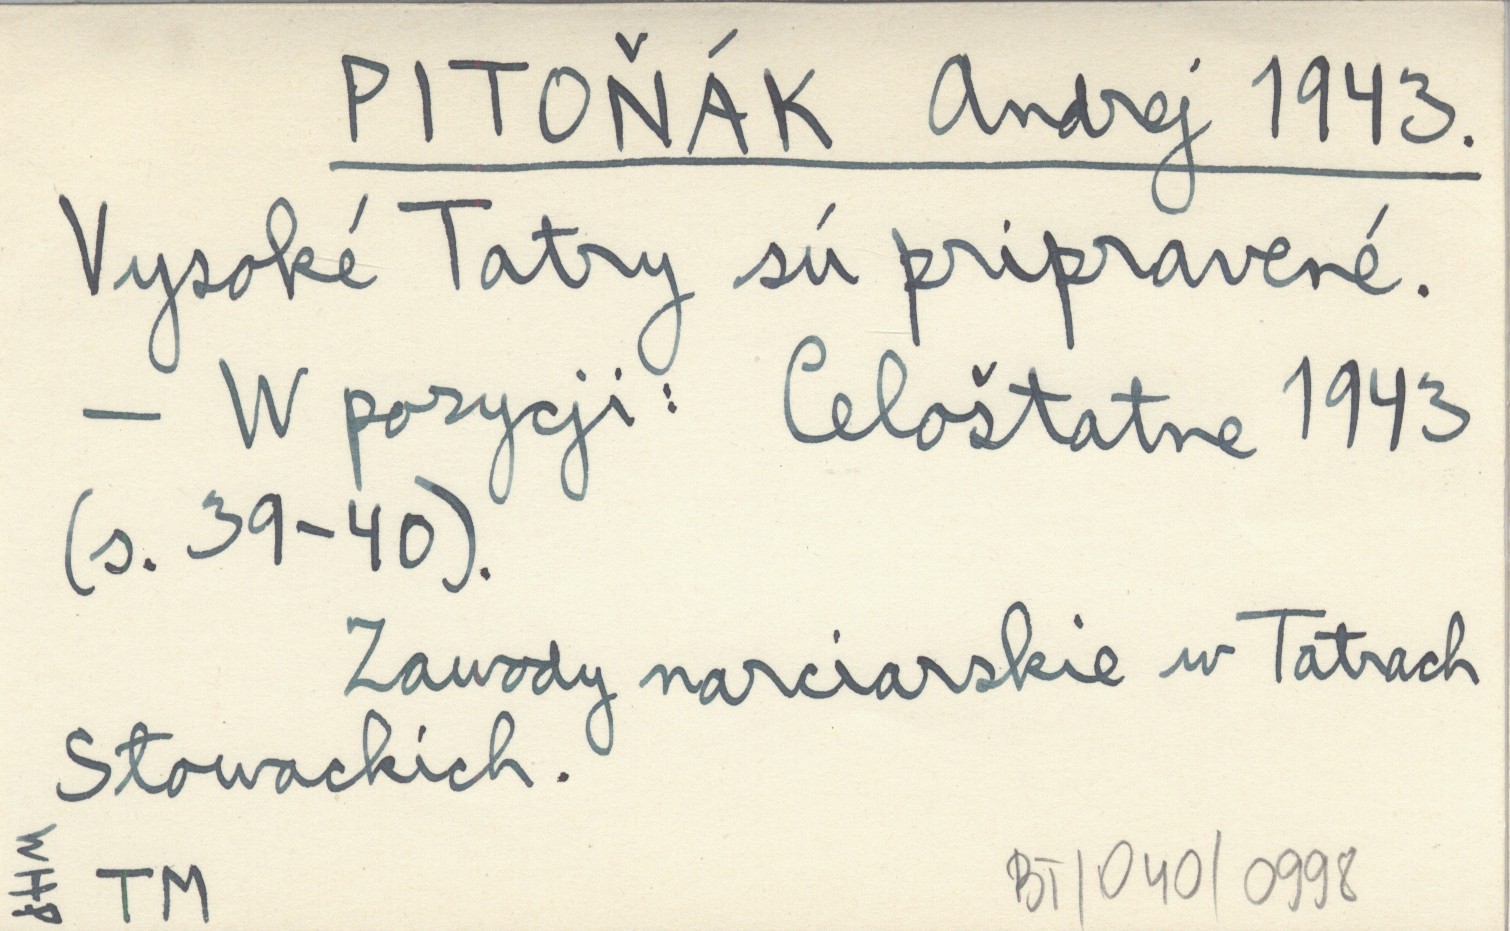 PITOŇÁK Andrej 1943.
Vysoké Tatry sú pripravené.
— W pozycji: Celoštatne 1943
(s. 39-40).
Zawody narciarskie w Tatrach
Słowackich.
WHP
TM
BT/040/0998